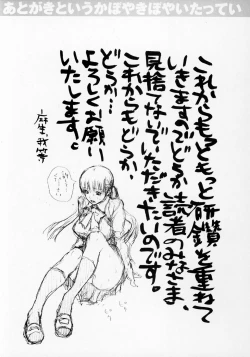 あとがきというかぼやきぼやいたってい
これからもっともっと研鑽を重ねて
いきますのでどうか読者のみなさま、
見捨てないでいただきたいのです。
これからもどうか、
どうか…
よろしくお願い
いたします。
麻生我等